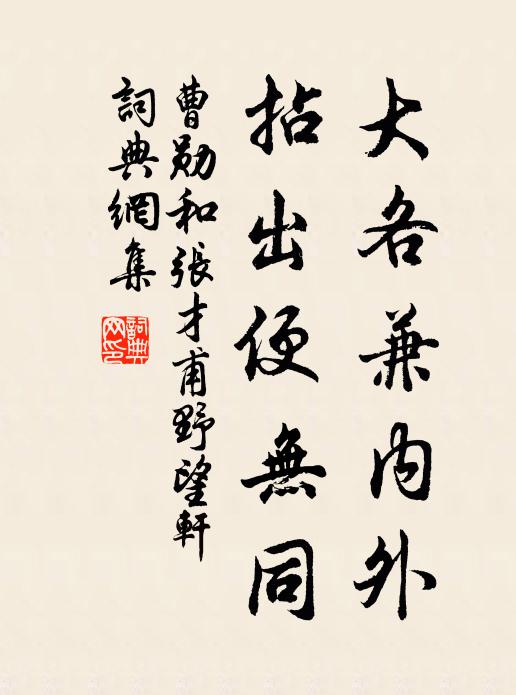 大各兼內外
拈出便無同
曹勛和張才甫野望軒
詞典網集
詞典網印